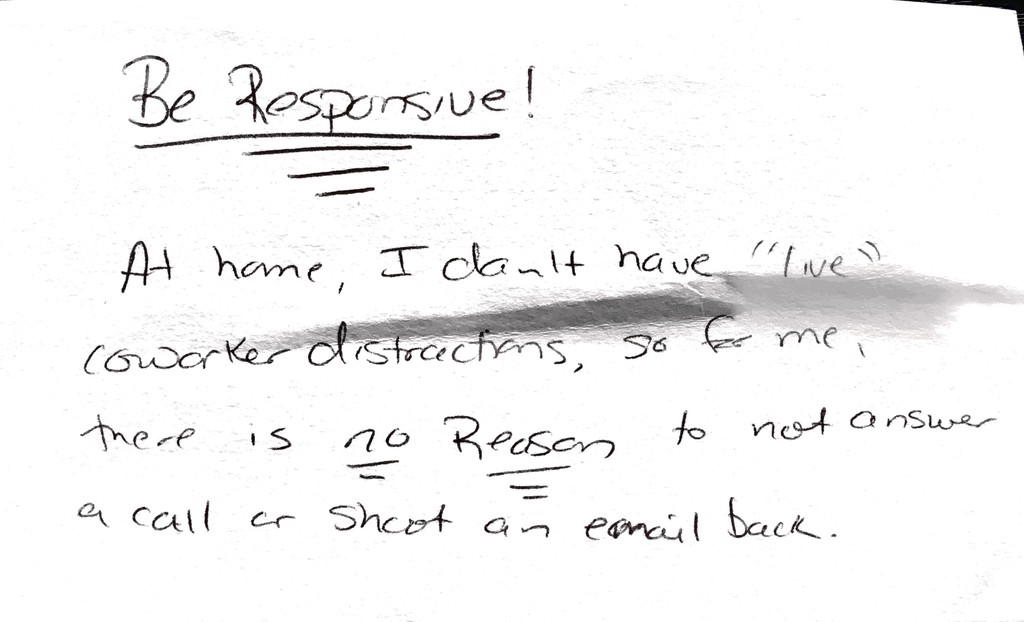 Be Responsive!
At home, I don't have "live"
coworker distractions, so for me,
there is no Reason to not answer
a call or shoot an email back.